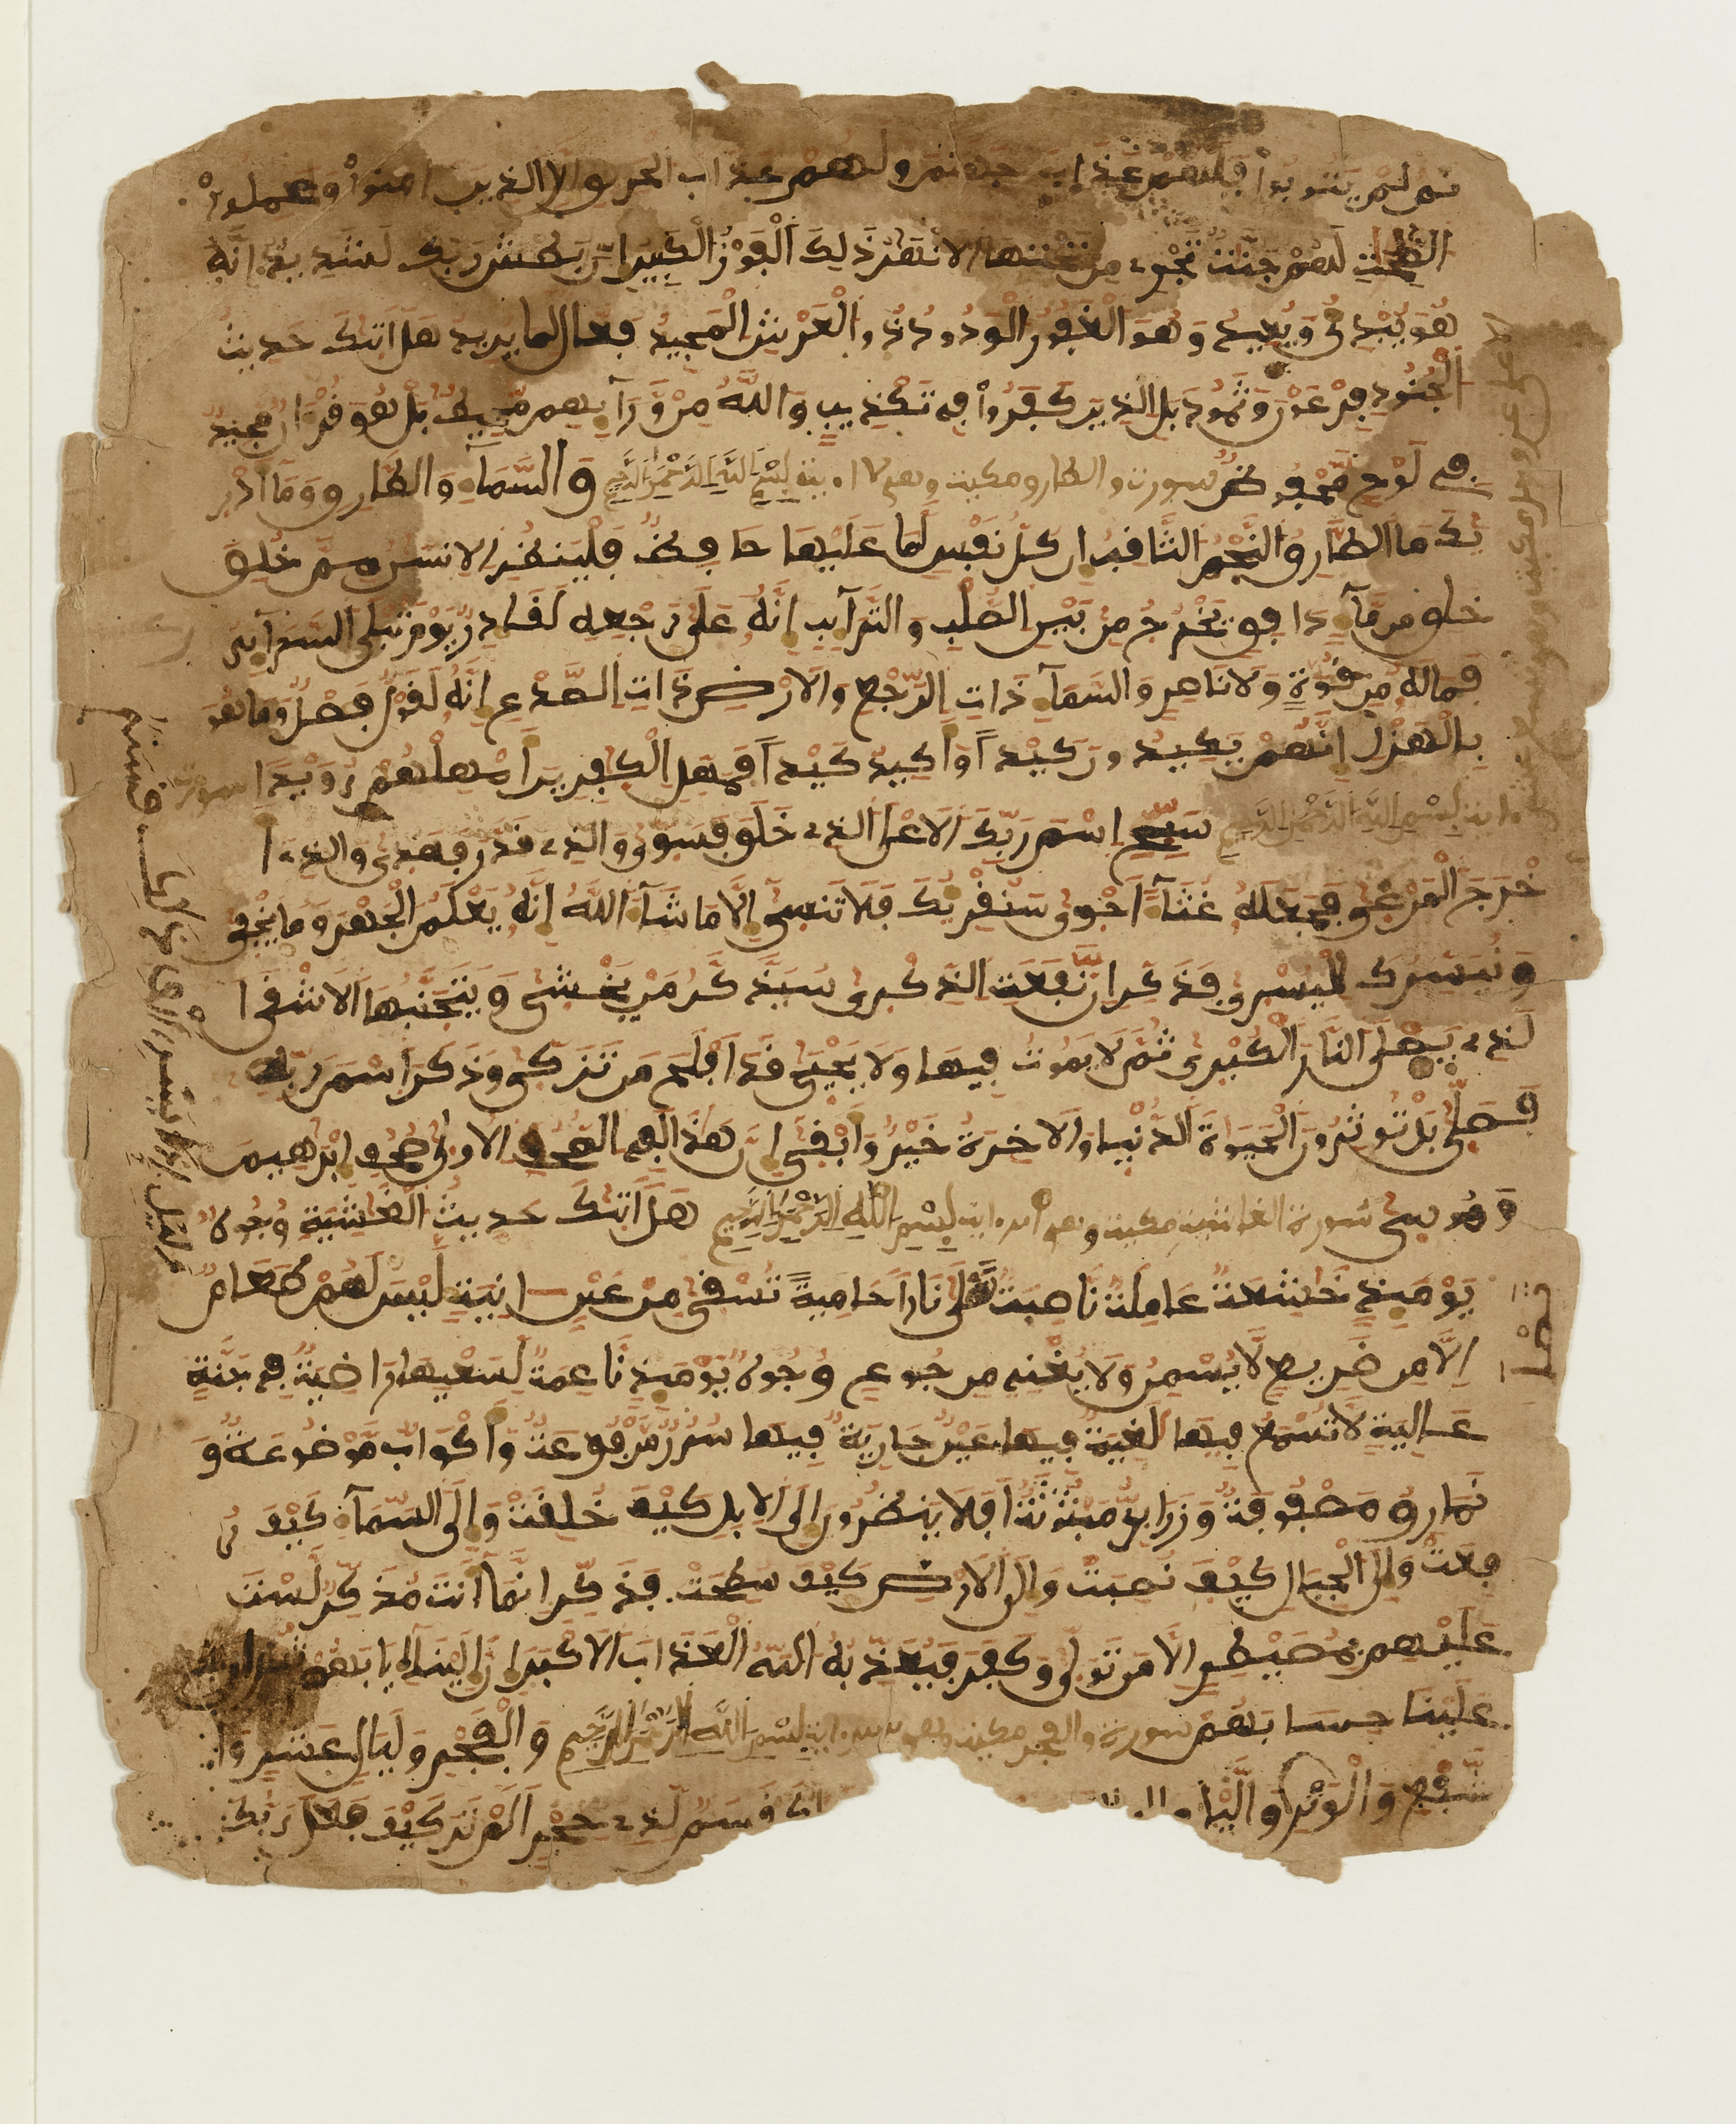 ثم لم يتوبوا فلهم عذاب جهنم ولهم عذاب الحريق الا الذين امنوا وعملوا
الصلحت لهم جنت تجرى من تحتها الانهر ذلك الفوز الكبير ان بطش ربك لشديد انه
هو يبدئ ويعيد وهو الغفور الودود ذو العرش المجيد فعال لما يريد هل اتىك حديث
الجنود فرعون وثمود بل الذين كفروا في تكذيب والله من ورآىهم محيط بل هو قرءان مجيد
في لوح محفوظ سورت والطارق مكيت وهى اية بسم الله الرحمن الرحيم والسمآء والطارق ومآ ادر
ىك ما الطارق النجم الثاقب ان كل نفس لما عليها حافظ فلينظر الانسن مم خلق
خلق من مآء دافق يخرج من بين الصلب والترآىب انه على رجعه لقادر يوم تبلى السرآىر
فماله من قوة ولا ناصر والسمآء ذات الرجع والارض ذات الصدع انه لقول فصل وما هو
بالهزل انهم يكيدون كيدا واكيد كيدا فمهل الكفرين امهلهم رويدا سورة
اية بسم الله الرحمن الرحيم سبح اسم ربك الاعلى الذى خلق فسوى والذى قدر فهدى والذى ا
خرج المرعى فجعله غثآء احوى سنقرىك فلا تنسى الا ما شآء الله انه يعلم الجهر وما يخفى
ونيسرك لليسرى فذكر ان نفعت الذكرى سيذكر من يخشى ويتجنبها الاشقى ا
لذى يصلى النار الكبرى ثم لا يموت فيها ولا يحيى قد افلح من تزكى وذكر اسم ربه
فصلى بل توثرون الحيوة الدنيا والاخرة خير وابقى ان هذا لفى الصحف الاولى صحف ابرهيم
وموسى سورة الغاشية مكية وهى اية بسم الله الرحمن الرحيم هل اتىك حديث الغشية وجوه
يومىذ خشعة عاملة ناصبة تصلى نارا حامية تسقى من عين انية ليس لهم طعام
الا من ضريع لا يسمن ولا يغنى من جوع وجوه يومىذ ناعمة لسعيها راضية في جنة
عالية لا تسمع فيها لغية فيها عين جارية فيها سرر مرفوعة واكواب موضوعة و
نمارق مصفوفة وزرابى مبثوثة افلا ينظرون الى الابل كيف خلقت والى السمآء كيف ر
فعت والى الجبال كيف نصبت والى الارض كيف سطحت فذكر انمآ انت مذكر لست
عليهم بمصيطر الا من تولى وكفر فيعذبه الله العذاب الاكبر ان الينآ ايابهم ثم ان
علينا حسابهم سورة والفجر مكية وهى اية بسم الله الرحمن الرحيم والفجر وليال عشر وا
لشفع والوتر واليل قسم لذى حجر الم تر كيف فعل ربك